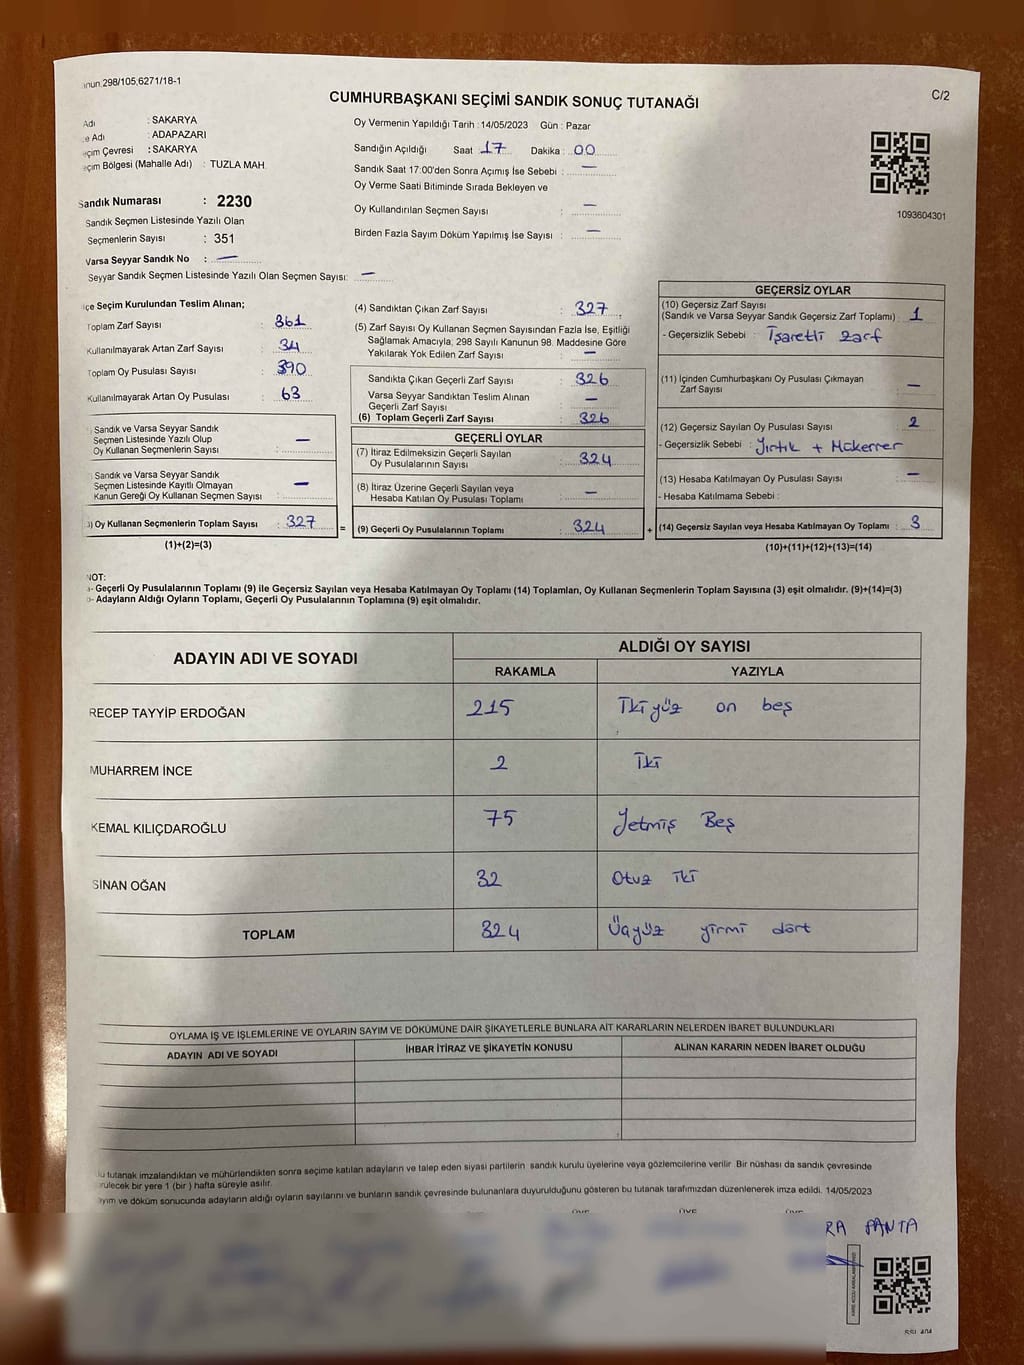 298/105,6271/18-1
C/2
CUMHURBAŞKANI SEÇİMİ SANDIK SONUÇ TUTANAĞI
Adı : SAKARYA
Adı : ADAPAZARI
Çevresi : SAKARYA
Bölgesi (Mahalle Adı) : TUZLA MAH.
Sandık Numarası : 2230
Sandık Seçmen Listesinde Yazılı Olan
Seçmenlerin Sayısı : 351
Varsa Seyyar Sandık No : —
Seyyar Sandık Seçmen Listesinde Yazılı Olan Seçmen Sayısı: —
Oy Vermenin Yapıldığı Tarih : 14/05/2023 Gün : Pazar
Sandığın Açıldığı Saat 17 Dakika : 00
Sandık Saat 17:00'den Sonra Açımış İse Sebebi : —
Oy Verme Saati Bitiminde Sırada Bekleyen ve
Oy Kullandırılan Seçmen Sayısı : —
Birden Fazla Sayım Döküm Yapılmış İse Sayısı : —
1093604301
Seçim Kurulundan Teslim Alınan;
Toplam Zarf Sayısı : 361
Kullanılmayarak Artan Zarf Sayısı : 34
Toplam Oy Pusulası Sayısı : 390
Kullanılmayarak Artan Oy Pusulası : 63
Sandık ve Varsa Seyyar Sandık
Seçmen Listesinde Yazılı Olup
Oy Kullanan Seçmenlerin Sayısı : —
Sandık ve Varsa Seyyar Sandık
Seçmen Listesinde Kayıtlı Olmayan
Kanun Gereği Oy Kullanan Seçmen Sayısı : —
3) Oy Kullanan Seçmenlerin Toplam Sayısı : 327
(1)+(2)=(3)
(4) Sandıktan Çıkan Zarf Sayısı : 327
(5) Zarf Sayısı Oy Kullanan Seçmen Sayısından Fazla İse, Eşitliği
Sağlamak Amacıyla, 298 Sayılı Kanunun 98. Maddesine Göre
Yakılarak Yok Edilen Zarf Sayısı : —
Sandıkta Çıkan Geçerli Zarf Sayısı : 326
Varsa Seyyar Sandıktan Teslim Alınan
Geçerli Zarf Sayısı : —
(6) Toplam Geçerli Zarf Sayısı : 326
GEÇERLİ OYLAR
(7) İtiraz Edilmeksizin Geçerli Sayılan
Oy Pusulalarının Sayısı : 324
(8) İtiraz Üzerine Geçerli Sayılan veya
Hesaba Katılan Oy Pusulası Toplamı : —
= (9) Geçerli Oy Pusulalarının Toplamı : 324
GEÇERSİZ OYLAR
(10) Geçersiz Zarf Sayısı
(Sandık ve Varsa Seyyar Sandık Geçersiz Zarf Toplamı) : 1
- Geçersizlik Sebebi : İşaretli zarf
(11) İçinden Cumhurbaşkanı Oy Pusulası Çıkmayan
Zarf Sayısı : —
(12) Geçersiz Sayılan Oy Pusulası Sayısı : 2
- Geçersizlik Sebebi : Yırtık + Mükerrer
(13) Hesaba Katılmayan Oy Pusulası Sayısı : —
- Hesaba Katılmama Sebebi :
+ (14) Geçersiz Sayılan veya Hesaba Katılmayan Oy Toplamı : 3
(10)+(11)+(12)+(13)=(14)
NOT:
a- Geçerli Oy Pusulalarının Toplamı (9) ile Geçersiz Sayılan veya Hesaba Katılmayan Oy Toplamı (14) Toplamları, Oy Kullanan Seçmenlerin Toplam Sayısına (3) eşit olmalıdır. (9)+(14)=(3)
b- Adayların Aldığı Oyların Toplamı, Geçerli Oy Pusulalarının Toplamına (9) eşit olmalıdır.
ADAYIN ADI VE SOYADI
ALDIĞI OY SAYISI
RAKAMLA YAZIYLA
RECEP TAYYİP ERDOĞAN 215 İki yüz on beş
MUHARREM İNCE 2 İki
KEMAL KILIÇDAROĞLU 75 Yetmiş Beş
SİNAN OĞAN 32 Otuz iki
TOPLAM 324 Üçyüz yirmi dört
OYLAMA İŞ VE İŞLEMLERİNE VE OYLARIN SAYIM VE DÖKÜMÜNE DAİR ŞİKAYETLERLE BUNLARA AİT KARARLARIN NELERDEN İBARET BULUNDUKLARI
ADAYIN ADI VE SOYADI İHBAR İTİRAZ VE ŞİKAYETİN KONUSU ALINAN KARARIN NEDEN İBARET OLDUĞU
tutanak imzalandıktan ve mühürlendikten sonra seçime katılan adayların ve talep eden siyasi partilerin sandık kurulu üyelerine veya gözlemcilerine verilir Bir nüshası da sandık çevresinde
bir yere 1 (bir ) hafta süreyle asılır.
ve döküm sonucunda adayların aldığı oyların sayılarını ve bunların sandık çevresinde bulunanlara duyurulduğunu gösteren bu tutanak tarafımızdan düzenlenerek imza edildi. 14/05/2023
ÜYE ÜYE ÜYE
RA PANTA